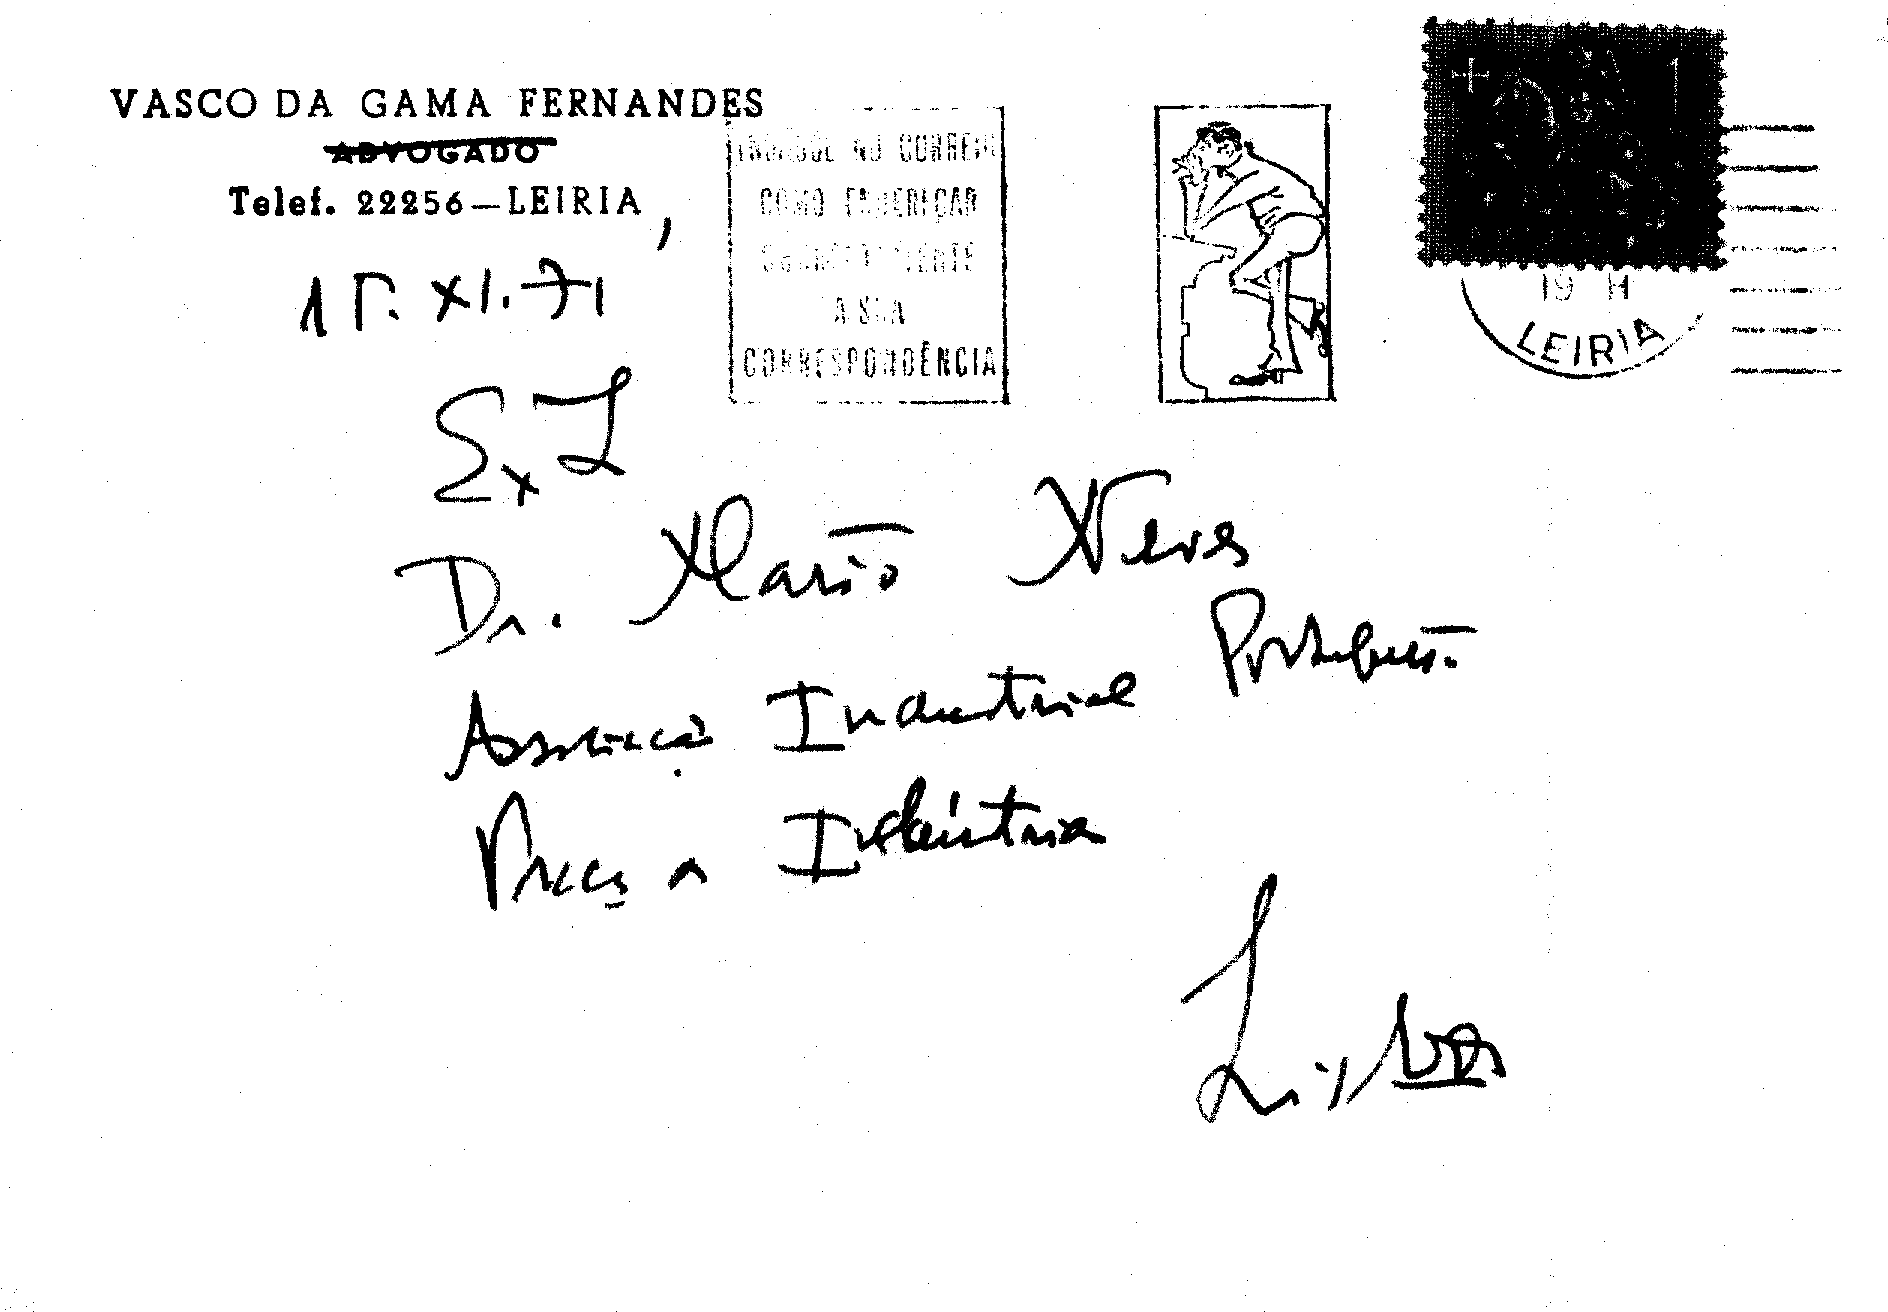 VASCO DA GAMA FERNANDES
ADVOGADO
Telef. 22256—LEIRIA,
15.XI.71
NO CORREIO
COMO ENDEREÇAR
A SUA
CORRESPONDÊNCIA
19 H
LEIRIA
Dr. Mário Neves
Associação Industrial Portuguesa
Praça a Indústria
Lisboa